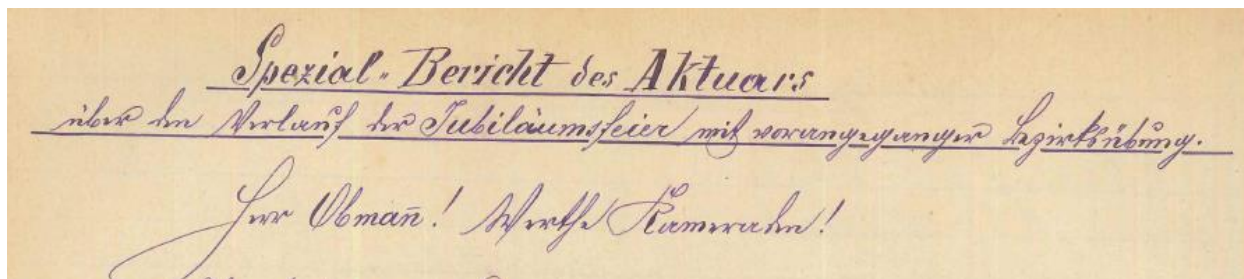 Spezial-Bericht des Aktuars
über den Verlauf der Jubiläumsfeier mit vorangeganger Bezirksübung.
Herr Obmañ! Werthe Kameraden!